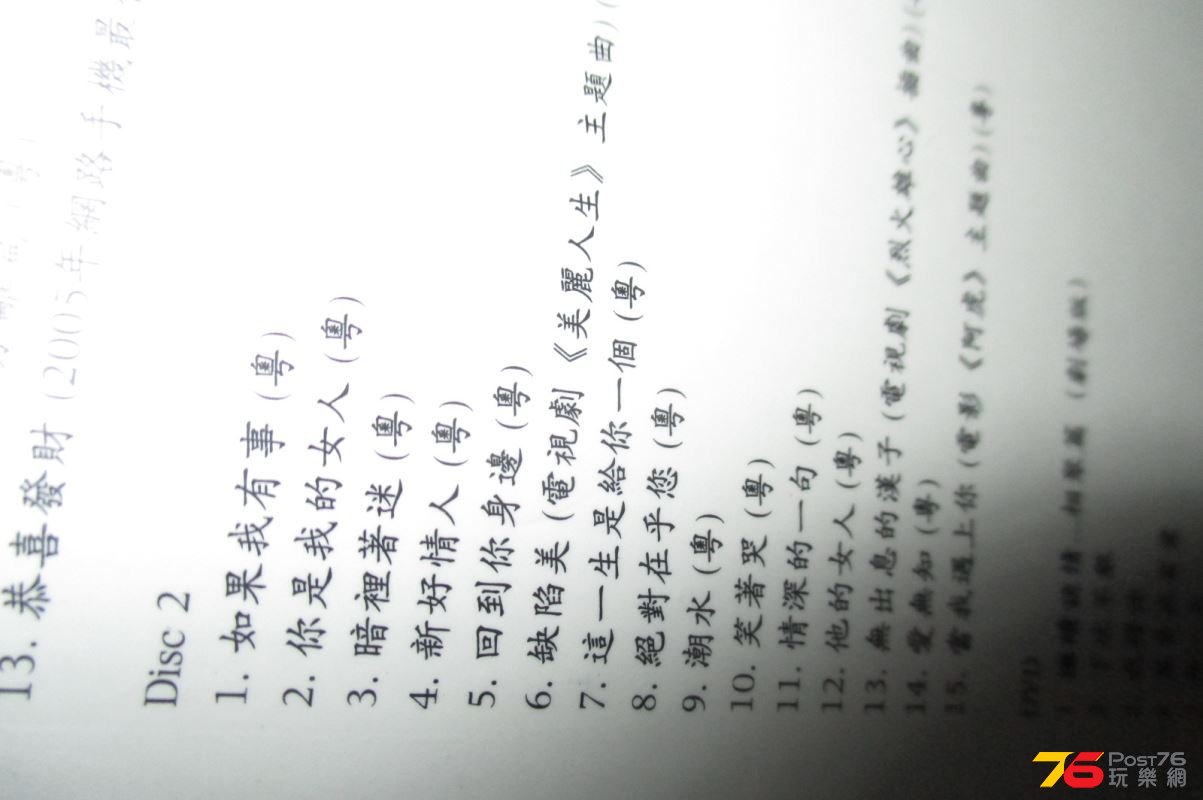 13. 恭喜發財 (2005年網路手機最
Disc 2
1. 如果我有事 (粵)
2. 你是我的女人 (粵)
3. 暗裡著迷 (粵)
4. 新好情人 (粵)
5. 回到你身邊 (粵)
6. 缺陷美 (電視劇《美麗人生》主題曲)
7. 這一生是給你一個 (粵)
8. 絕對在乎您 (粵)
9. 潮水 (粵)
10. 笑著哭 (粵)
11. 情深的一句 (粵)
12. 他的女人 (粵)
13. 無出息的漢子 (電視劇《烈火雄心》插曲)
14. 愛無知 (粵)
15. 當我遇上你 (電影《阿虎》主題曲) (粵)
DVD
76 Post76
玩樂網